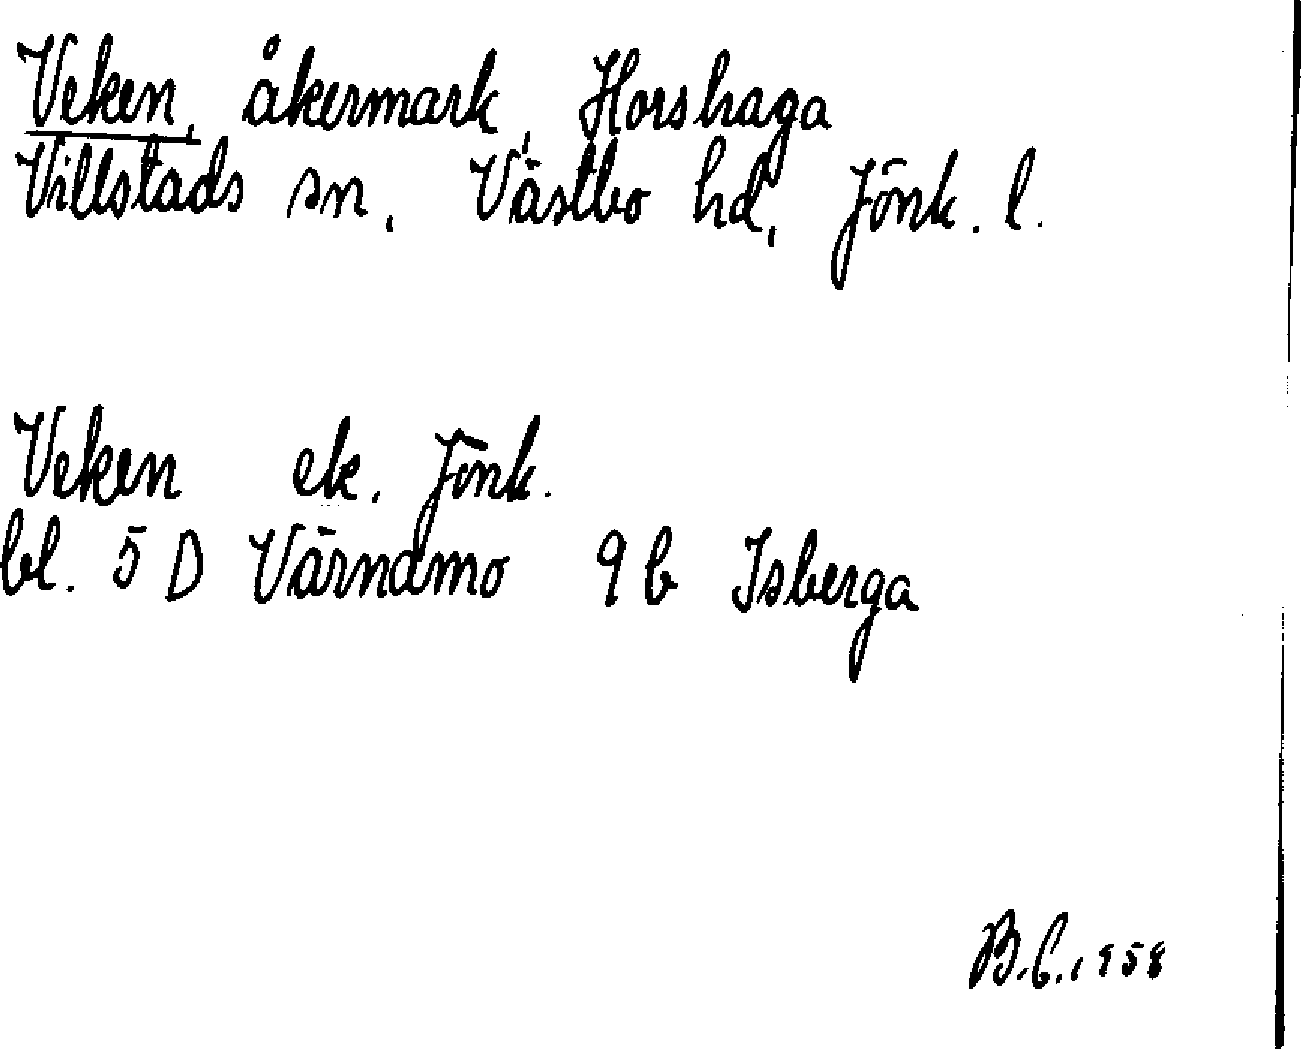 Veken, åkermark, Horshaga
Villstads sn, Västbo hd, Jönk. l.
Veken ek. Jönk.
bl. 5 D Värnamo 9 b Isberga
B.C. 1958